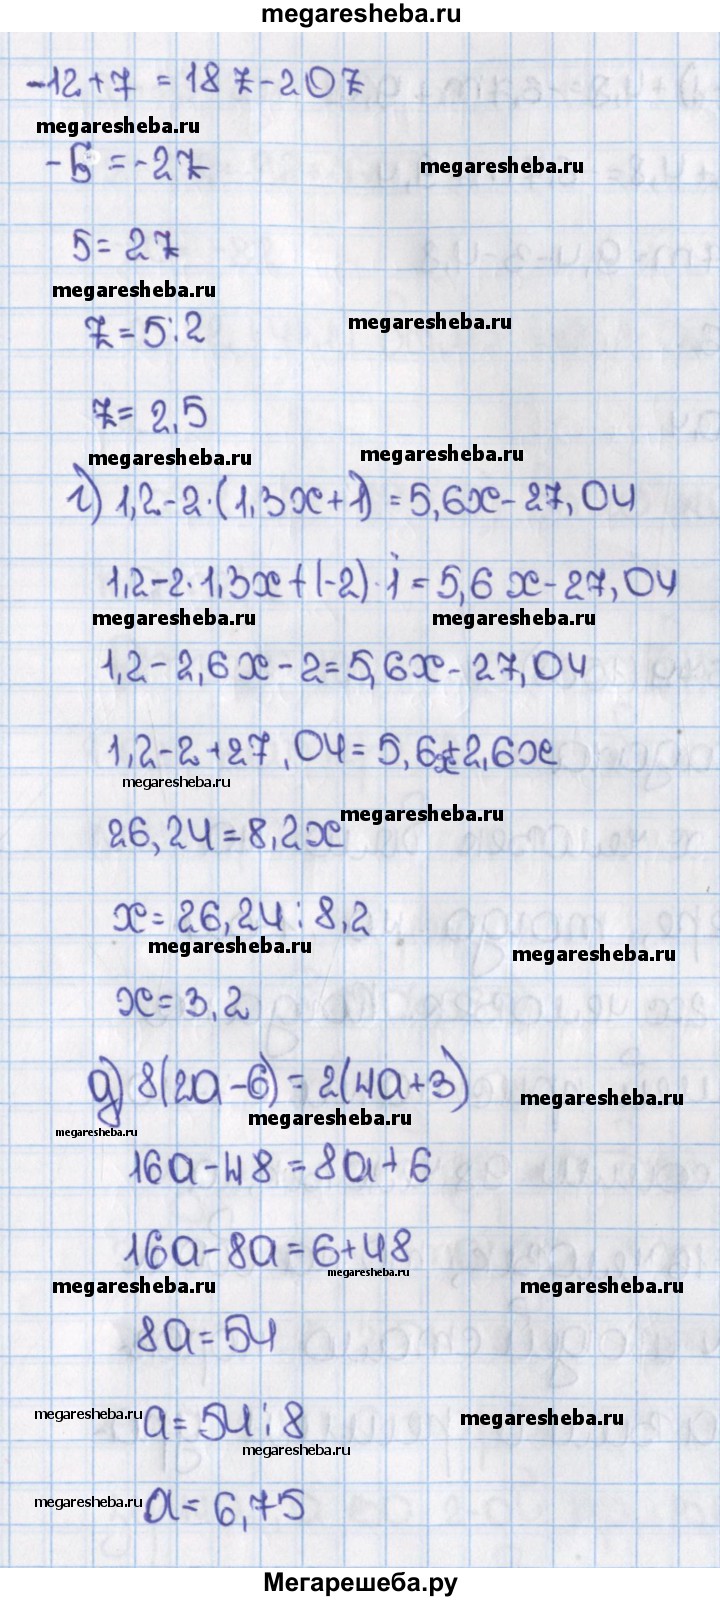 megaresheba.ru
-12+7 = 18z-20z
megaresheba.ru
-5 = -2z
megaresheba.ru
5 = 2z
megaresheba.ru
z = 5:2
megaresheba.ru
z = 2,5
megaresheba.ru
megaresheba.ru
г) 1,2-2·(1,3x+1) = 5,6x-27,04
1,2-2·1,3x+(-2)·1 = 5,6x-27,04
megaresheba.ru
megaresheba.ru
1,2-2,6x-2=5,6x-27,04
1,2-2+27,04=5,6x+2,6x
megaresheba.ru
megaresheba.ru
26,24=8,2x
x=26,24:8,2
megaresheba.ru
megaresheba.ru
x=3,2
д) 8(2a-6)=2(4a+3)
megaresheba.ru
megaresheba.ru
megaresheba.ru
16a-48=8a+6
16a-8a=6+48
megaresheba.ru
megaresheba.ru
megaresheba.ru
8a=54
megaresheba.ru
a=54:8
megaresheba.ru
megaresheba.ru
megaresheba.ru
a=6,75
Мегарешеба.ру